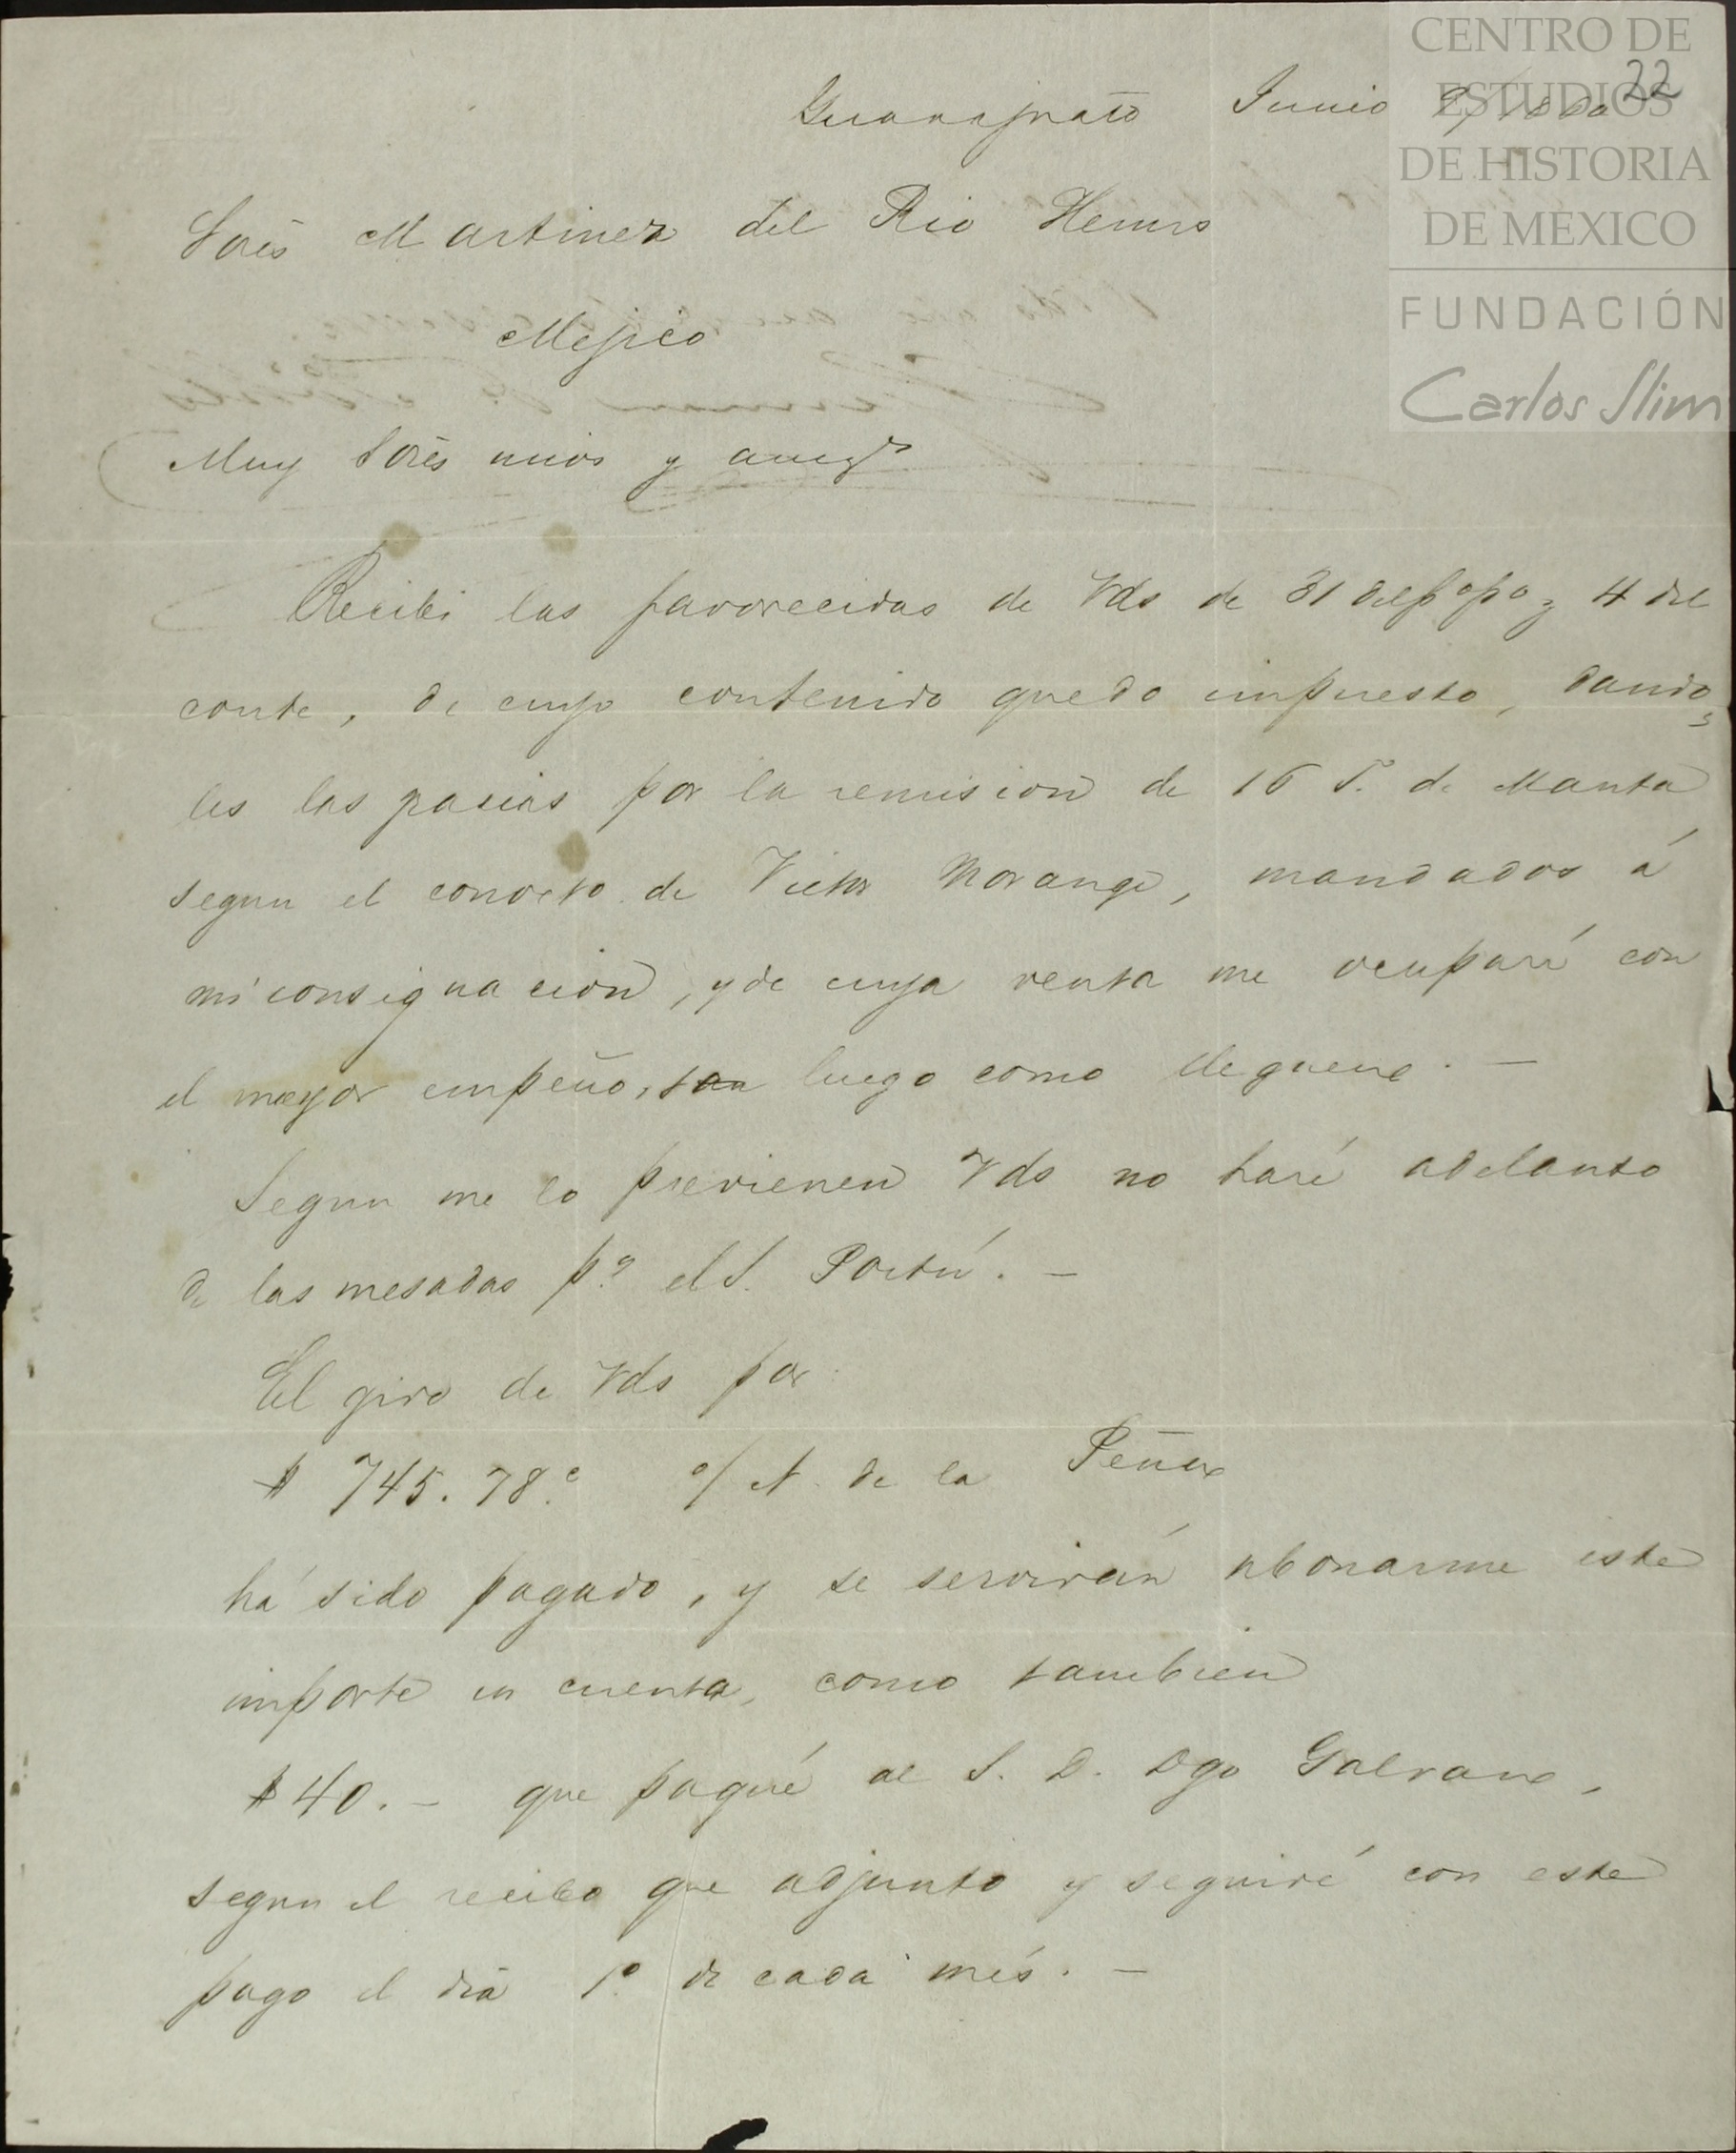 CENTRO DE
ESTUDIOS
DE HISTORIA
DE MEXICO
FUNDACIÓN
Carlos Slim
22
Guanajuato Junio
Sores Martinez del Rio Hemrs
Mejico
Muy Sores mios y amigs
Recibi las favorecidas de Vds de 31 del po po y 4 del
conte, de cuyo contenido quedo impuesto, dando
les las gracias por la remision de 16 T. de Manta
segun el conocto de Victor Morange, mandados á
mi consignacion, y de cuya venta me ocuparé con
el mayor empeño, tan luego como lleguen. —
Segun me lo previenen Vds no haré adelanto
de las mesadas pa el S. Portú. —
El giro de Vds por
$ 745.78c o/ N. de la Peña
há sido pagado, y se servirán abonarme este
importe en cuenta, como tambien
$ 40. — que pagué al S. D. Dgo Galvan,
segun el recibo que adjunto y seguiré con este
pago el dia 1o de cada més. —